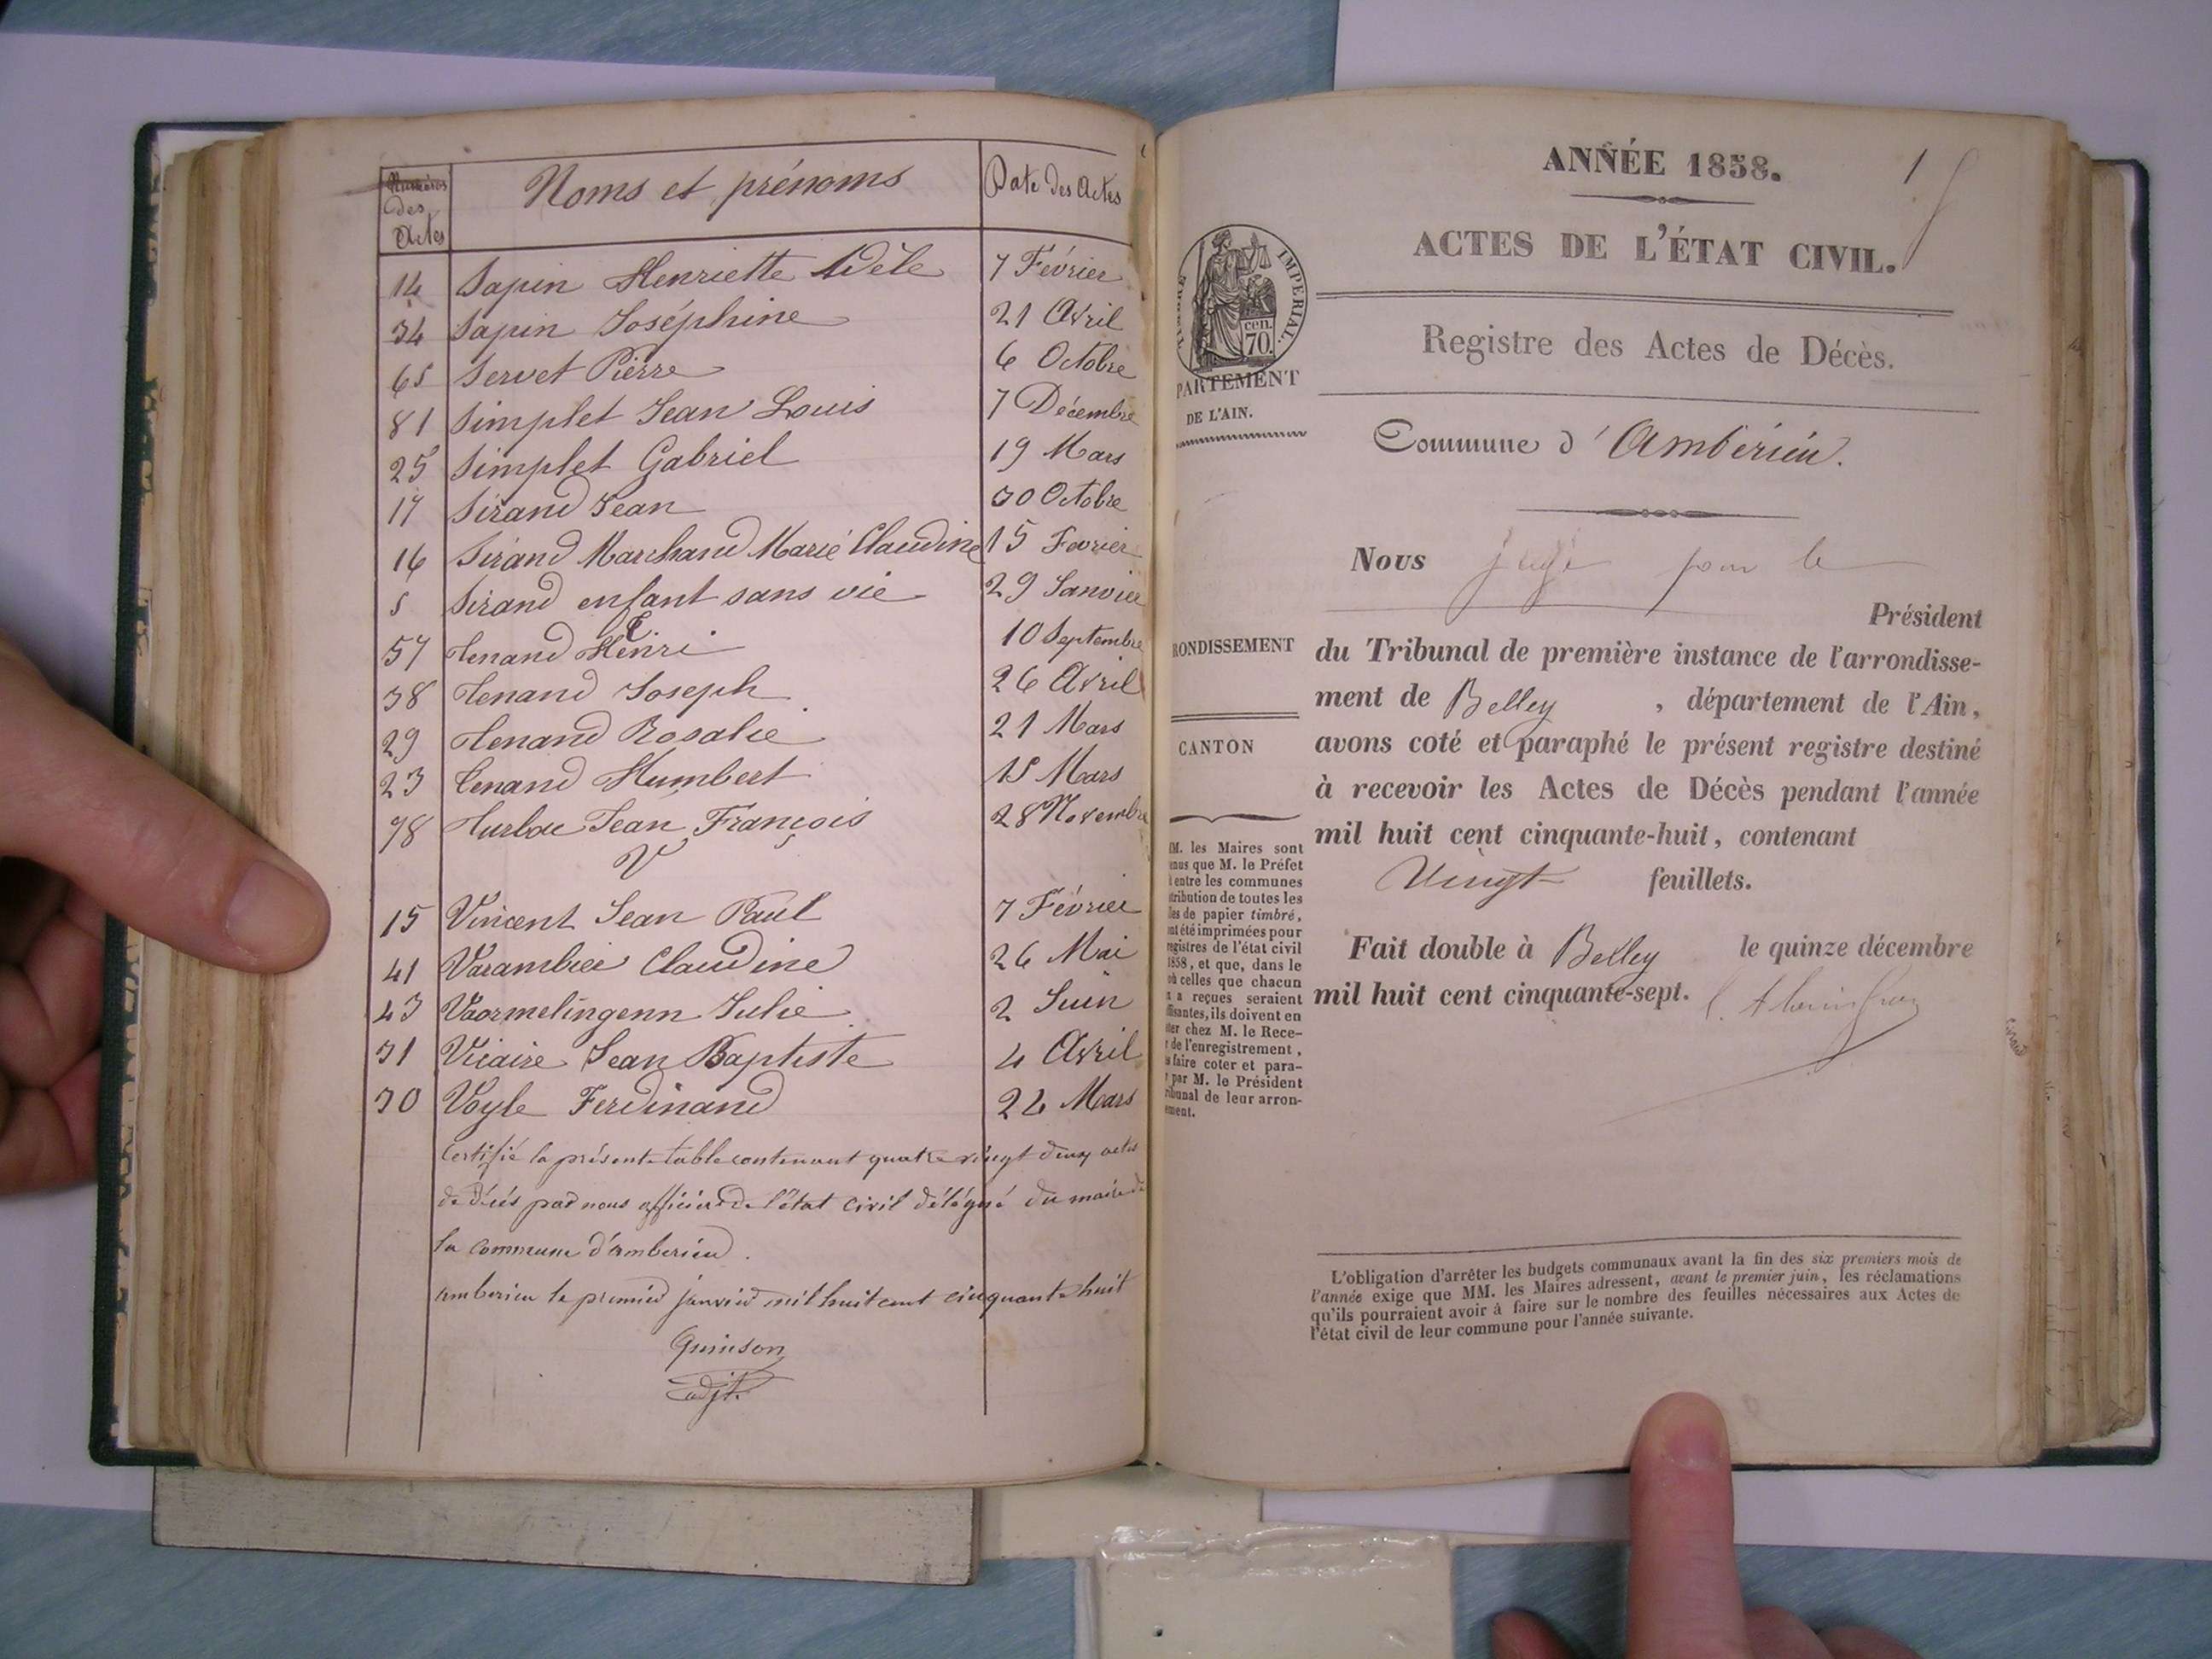 Numéros des Actes
Noms et prénoms
Date des Actes
14 Sapin Henriette Adèle 7 Février
34 Sapin Joséphine 21 Avril
65 Servet Pierre 6 Octobre
81 Simplet Jean Louis 7 Décembre
25 Simplet Gabriel 19 Mars
17 Sirand Jean 30 Octobre
16 Sirand Marchand Marie Claudine 15 Fevrier
5 Sirand enfant sans vie 29 Janvier
T
57 Tenand Henri 10 Septembre
38 Tenand Joseph 26 Avril
29 Tenand Rosalie 21 Mars
23 Tenand Humbert 15 Mars
78 Jean François 28 Novembre
V
15 Vincent Jean Paul 7 Février
41 Varambier Claudine 26 Mai
43 Vaormelingenn Julie 2 Juin
31 Vicaire Jean Baptiste 4 Avril
30 Voyle Ferdinand 24 Mars
Certifié la présente table contenant quatre vingt deux actes
de décès par nous officier de l'état civil délégué du maire de
la commune d'amberieu.
amberieu le premier janvier mil huit cent cinquante huit
Quinson
adjt.
1
ANNÉE 1858.
ACTES DE L'ÉTAT CIVIL.
IMPERIAL.
cen.
70.
PARTEMENT
DE L'AIN.
Registre des Actes de Décès.
Commune d'Ambérieu.
Nous juge pour le
Président
du Tribunal de première instance de l'arrondisse-
ment de Belley, département de l'Ain,
avons coté et paraphé le présent registre destiné
à recevoir les Actes de Décès pendant l'année
mil huit cent cinquante-huit, contenant
Vingt feuillets.
Fait double à Belley le quinze décembre
mil huit cent cinquante-sept.
RONDISSEMENT
CANTON
MM. les Maires sont
enus que M. le Préfet
t entre les communes
stribution de toutes les
lles de papier timbré,
nt été imprimées pour
registres de l'état civil
1858, et que, dans le
où celles que chacun
n a reçues seraient
ffisantes, ils doivent en
ter chez M. le Rece-
r de l'enregistrement,
s faire coter et para-
r par M. le Président
ribunal de leur arron-
ement.
L'obligation d'arrêter les budgets communaux avant la fin des six premiers mois de
l'année exige que MM. les Maires adressent, avant le premier juin, les réclamations
qu'ils pourraient avoir à faire sur le nombre des feuilles nécessaires aux Actes de
l'état civil de leur commune pour l'année suivante.